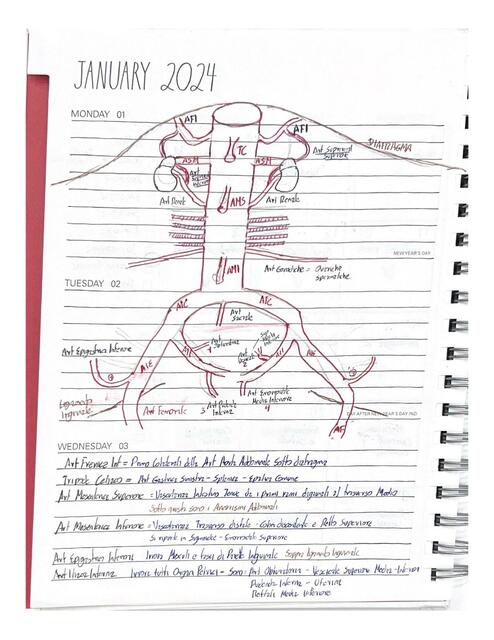 JANUARY 2024
MONDAY 01
AFI
AFI
TC
DIAFRAGMA
ASM
ASM
Art Surrenali
Superiore
Art
Inferiore
Art Renale
AMS
Art Renale
NEW YEAR'S DAY
AMI
Art Gonadiche = Ovariche
spermatiche
TUESDAY 02
AIC
AIC
Art
sacrale
Art Epigastrica Inferiore
AIE
AII
Art
Otturatoria
AII
AIE
Legamento
Inguinale
Art Femorale
3 Art Pudenda
Interna
Art Emorroidale
Media Inferiore
4
AF
DAY AFTER NEW YEAR'S DAY (NZ)
WEDNESDAY 03
Art Frenica Inf = Primo Collaterali della Art Aorta Addominale Sotto diaframma
Tripode Celiaco = Art Gastrica Sinistra - Splenica - Epatica Comune
Art Mesenterica Superiore = Intestino Tenue da i primi rami digiunali al trasverso Medio
Sotto questi sono i Aneurismi Addominali
Art Mesenterica Inferiore = Trasverso distale - Colon discendente e Retto Superiore
Si in Sigmoidee - Emorroidale Superiore
Art Epigastrica Inferiore Irrora Muscoli e fasci di Parete Inguinale Sopra Legamento Inguinale
Art Iliaca Interna Irrora tutti Organi Pelvici = Sono: Art Otturatoria - Vescicale Superiore Media - Inferiore
Pudenda Interna - Uterina
Rettali Media Inferiore